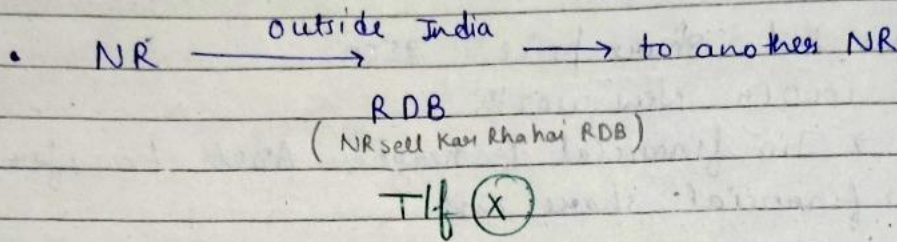 • NR outside India → → to another NR
RDB
(NR sell Kar Rha hai RDB)
T/f (X)